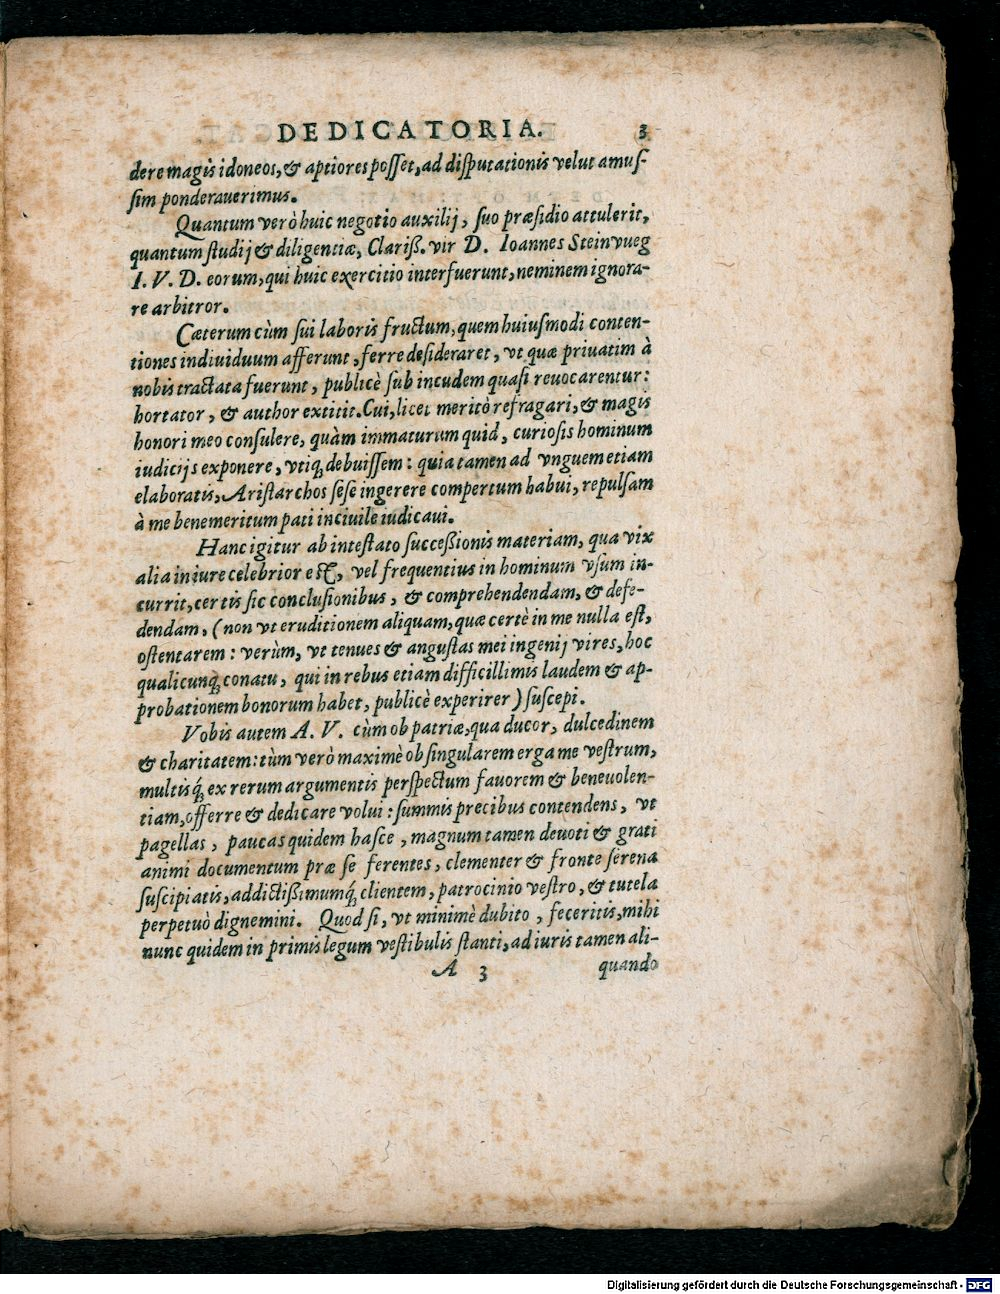 DEDICATORIA. 3
dere magis idoneos, & aptiores posset, ad disputationis velut amus-
sim ponderauerimus.
Quantum verò huic negotio auxilij, suo præsidio attulerit,
quantum studij & diligentiæ, Clariß. vir D. Ioannes Steinvueg
I. V. D. eorum, qui huic exercitio interfuerunt, neminem ignora-
re arbitror.
Cæterum cùm sui laboris fructum, quem huiusmodi conten-
tiones indiuiduum afferunt, ferre desideraret, vt quæ priuatim à
nobis tractata fuerunt, publicè sub incudem quasi reuocarentur:
hortator, & author extitit. Cui, licet meritò refragari, & magis
honori meo consulere, quàm immaturum quid, curiosis hominum
iudicijs exponere, vtiq; debuissem: quia tamen ad vnguem etiam
elaboratis, Aristarchos sese ingerere compertum habui, repulsam
à me benemeritum pati inciuile iudicaui.
Hanc igitur ab intestato succeßionis materiam, qua vix
alia in iure celebrior est, vel frequentius in hominum vsum in-
currit, certis sic conclusionibus, & comprehendendam, & defe-
dendam, (non vt eruditionem aliquam, quæ certè in me nulla est,
ostentarem: verùm, vt tenues & angustas mei ingenij vires, hoc
qualicunq; conatu, qui in rebus etiam difficillimis laudem & ap-
probationem bonorum habet, publicè experirer) suscepi.
Vobis autem A. V. cùm ob patriæ, qua ducor, dulcedinem
& charitatem: tùm verò maximè ob singularem erga me vestrum,
multisq́; ex rerum argumentis perspectum fauorem & beneuolen-
tiam, offerre & dedicare volui: summis precibus contendens, vt
pagellas, paucas quidem hasce, magnum tamen deuoti & grati
animi documentum præ se ferentes, clementer & fronte serena
suscipiatis, addictißimumq́; clientem, patrocinio vestro, & tutela
perpetuò dignemini. Quod si, vt minimè dubito, feceritis, mihi
nunc quidem in primis legum vestibulis stanti, ad iuris tamen ali-
A 3 quando
Digitalisierung gefördert durch die Deutsche Forschungsgemeinschaft - DFG